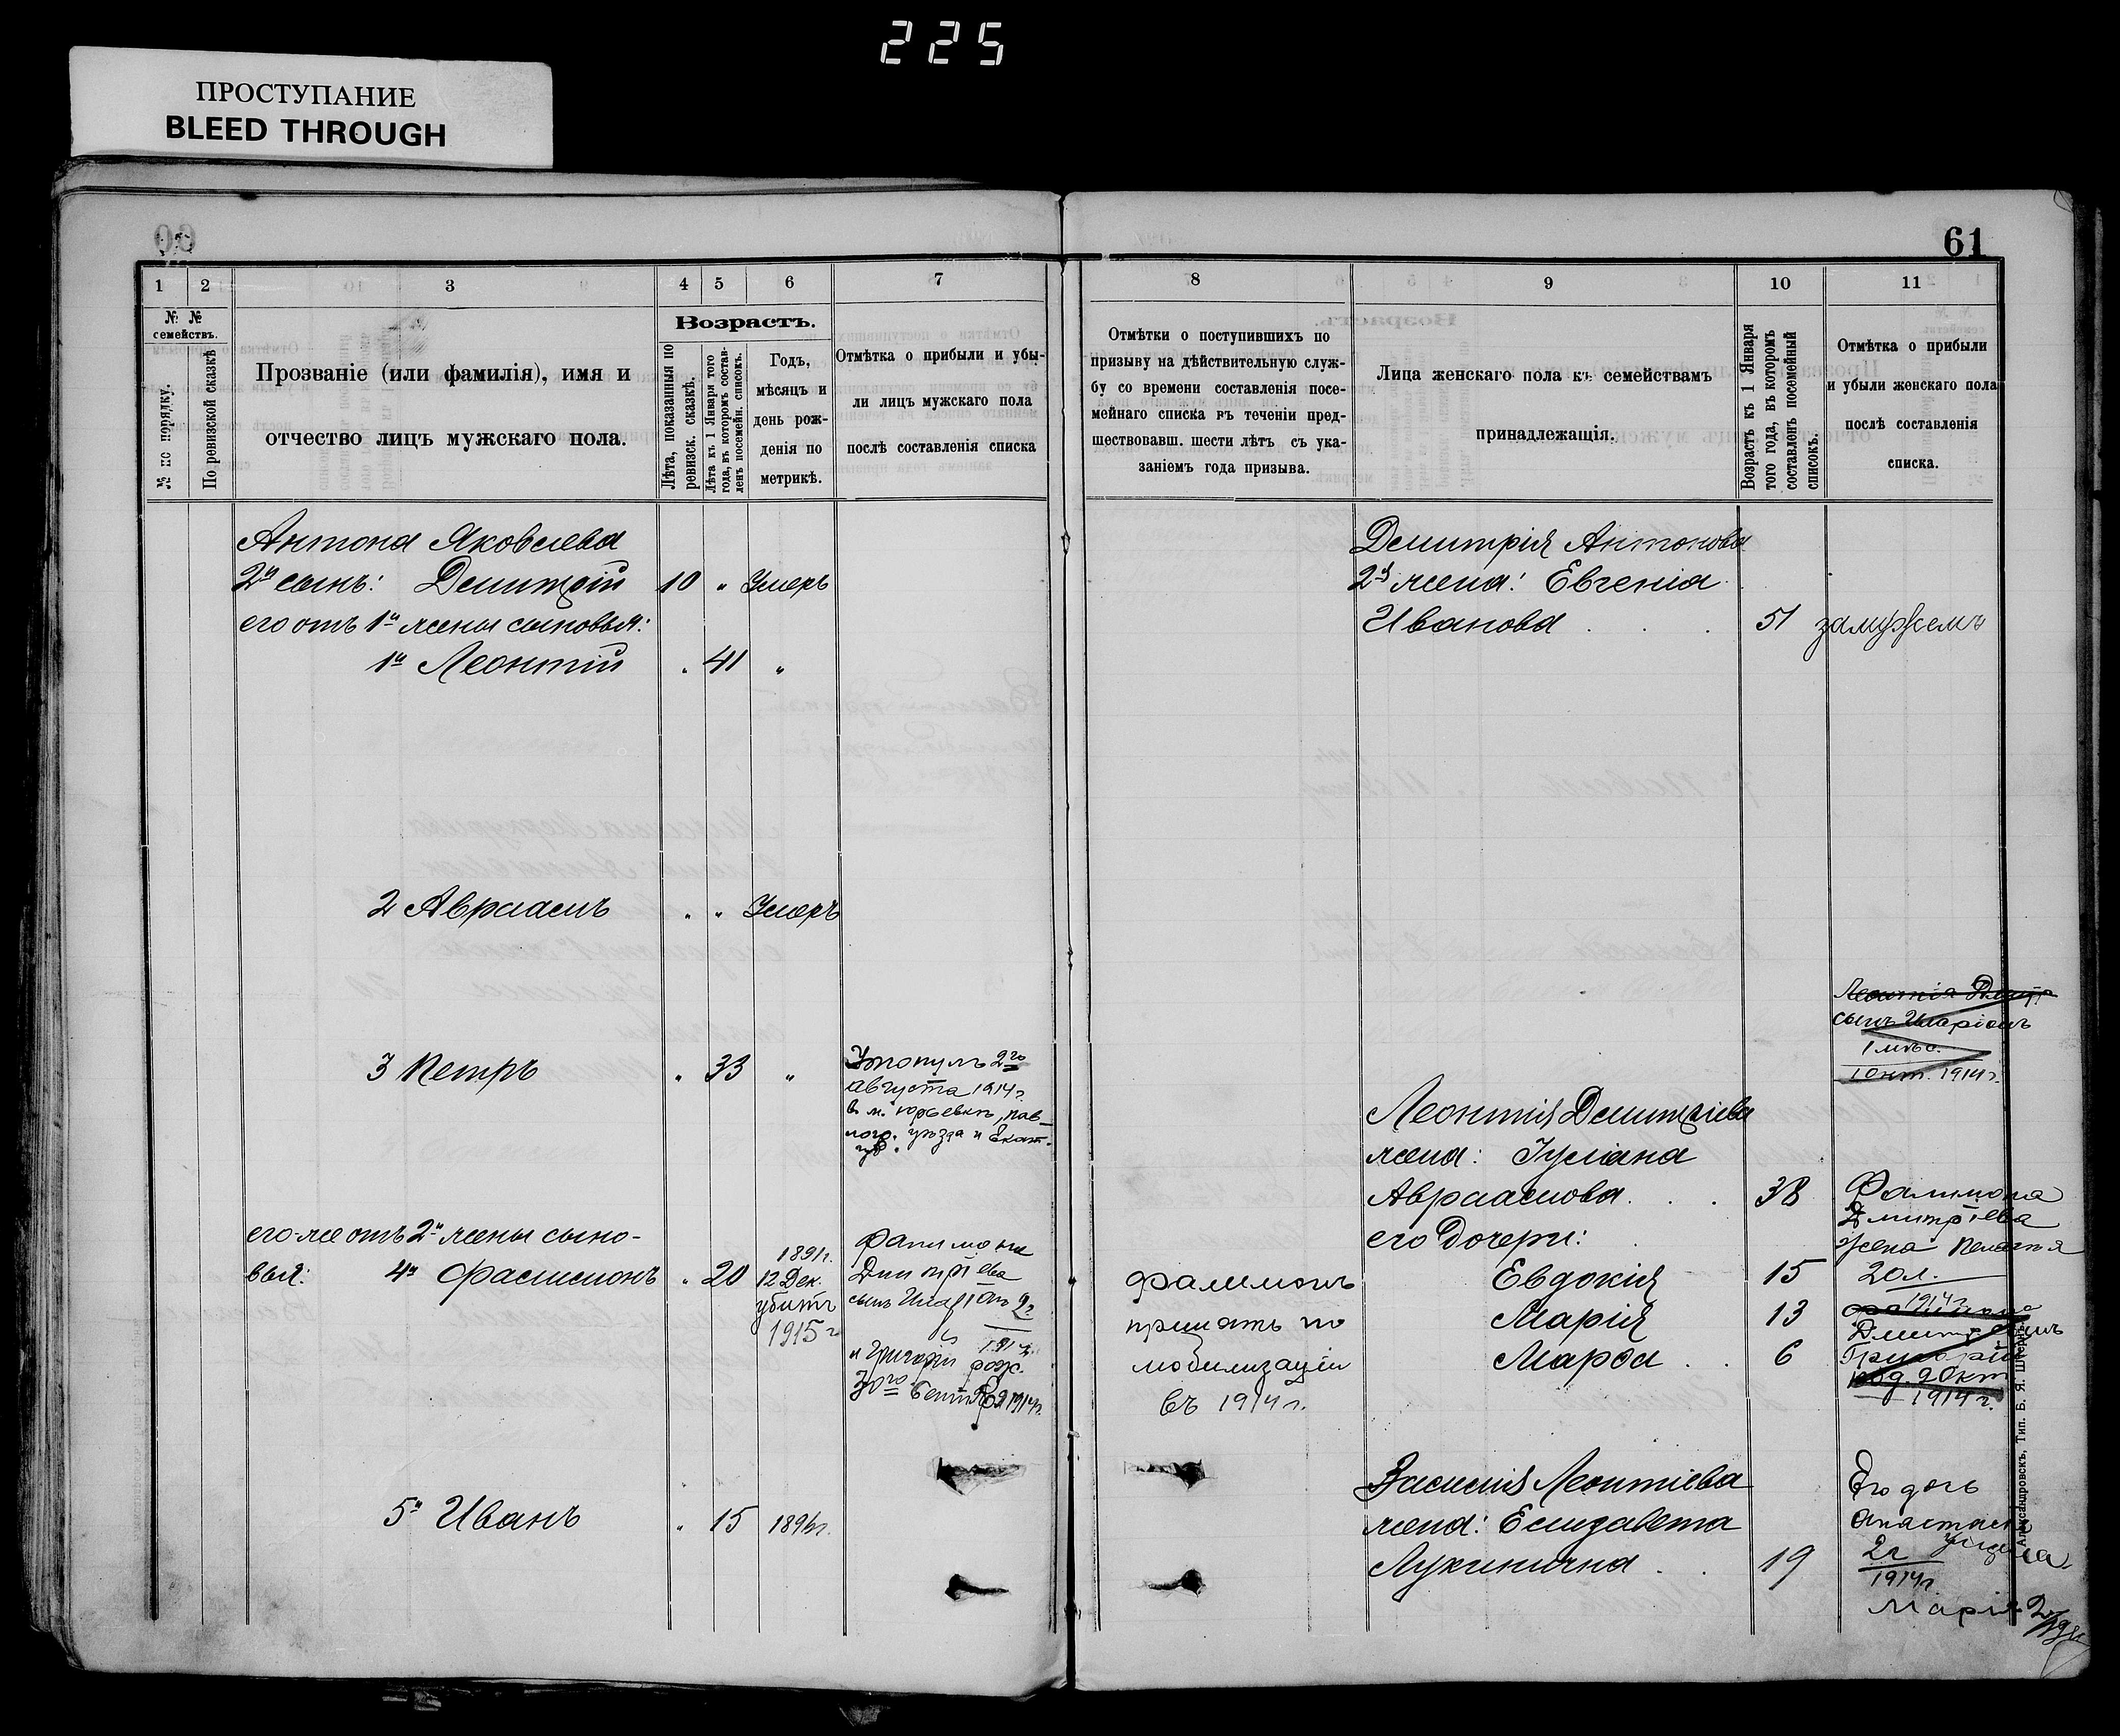 225
ПРОСТУПАНИЕ
BLEED THROUGH
61
1 2 3 4 5 6 7
№ № семействъ.
№ по порядку.
По ревизской сказкѣ
Прозваніе (или фамилія), имя и
отчество лицъ мужскаго пола.
Возрастъ.
Лѣта, показанныя по
ревизск. сказкѣ.
Лѣта къ 1 Января того
года, въ которомъ состав-
ленъ посемейн. списокъ.
Годъ,
мѣсяцъ и
день рож-
денія по
метрикѣ.
Отмѣтка о прибыли и убы-
ли лицъ мужскаго пола
послѣ составленія списка
Антона Яковлева
2й сынъ: Димитрій 10 " Умеръ
его отъ 1й жены сыновья:
1й Леонтій " 41 "
2 Авраамъ " " Умеръ
3 Петръ " 33 "
Утонулъ 2го
августа 1914 г.
в м. Юрьевкѣ, Пав-
логр. уѣзда и Екат.
губ.
его-же отъ 2й жены сыно-
вья: 4й Филимонъ " 20
1891 г.
12 Дек.
убитъ
1915 г
Филимона
Дмитріева
сынъ Иларіонъ 2 г
1914
и Григорій рож.
30го Сентября 1914 г.
5й Иванъ " 15 1896 г.
8 9 10 11
Отмѣтки о поступившихъ по
призыву на дѣйствительную служ-
бу со времени составленія посе-
мейнаго списка въ теченіи пред-
шествовавш. шести лѣтъ съ ука-
заніемъ года призыва.
Лица женскаго пола къ семействамъ
принадлежащія.
Возрастъ къ 1 Января
того года, въ которомъ
составленъ посемейный
списокъ.
Отмѣтка о прибыли
и убыли женскаго пола
послѣ составленія
списка.
Димитрія Антонова
2я жена: Евгенія
Иванова . . . 51 замужемъ
Леонтія Дмитр
сынъ Иларіонъ
1 мѣс.
1 окт. 1914 г.
Леонтія Димитріева
жена: Іуліана
Авраамова . . . 38
его дочери:
Евдокія 15
Марія 13
Марѳа . . 6
Филимона
Дмитріева
жена Пелагія
20 л.
1914 г.
Филимона
Дмитр сынъ
Григорій
род. 2 окт
1914 г.
Филимонъ
принятъ по
мобилизаціи
въ 1914 г.
Василія Леонтіева
жена: Елизавета
Лукинична . . 19
Его дочь
Анастасія
2 г
1914 г
Марія 2
Александровскъ, Тип. Б. Я. Штерн